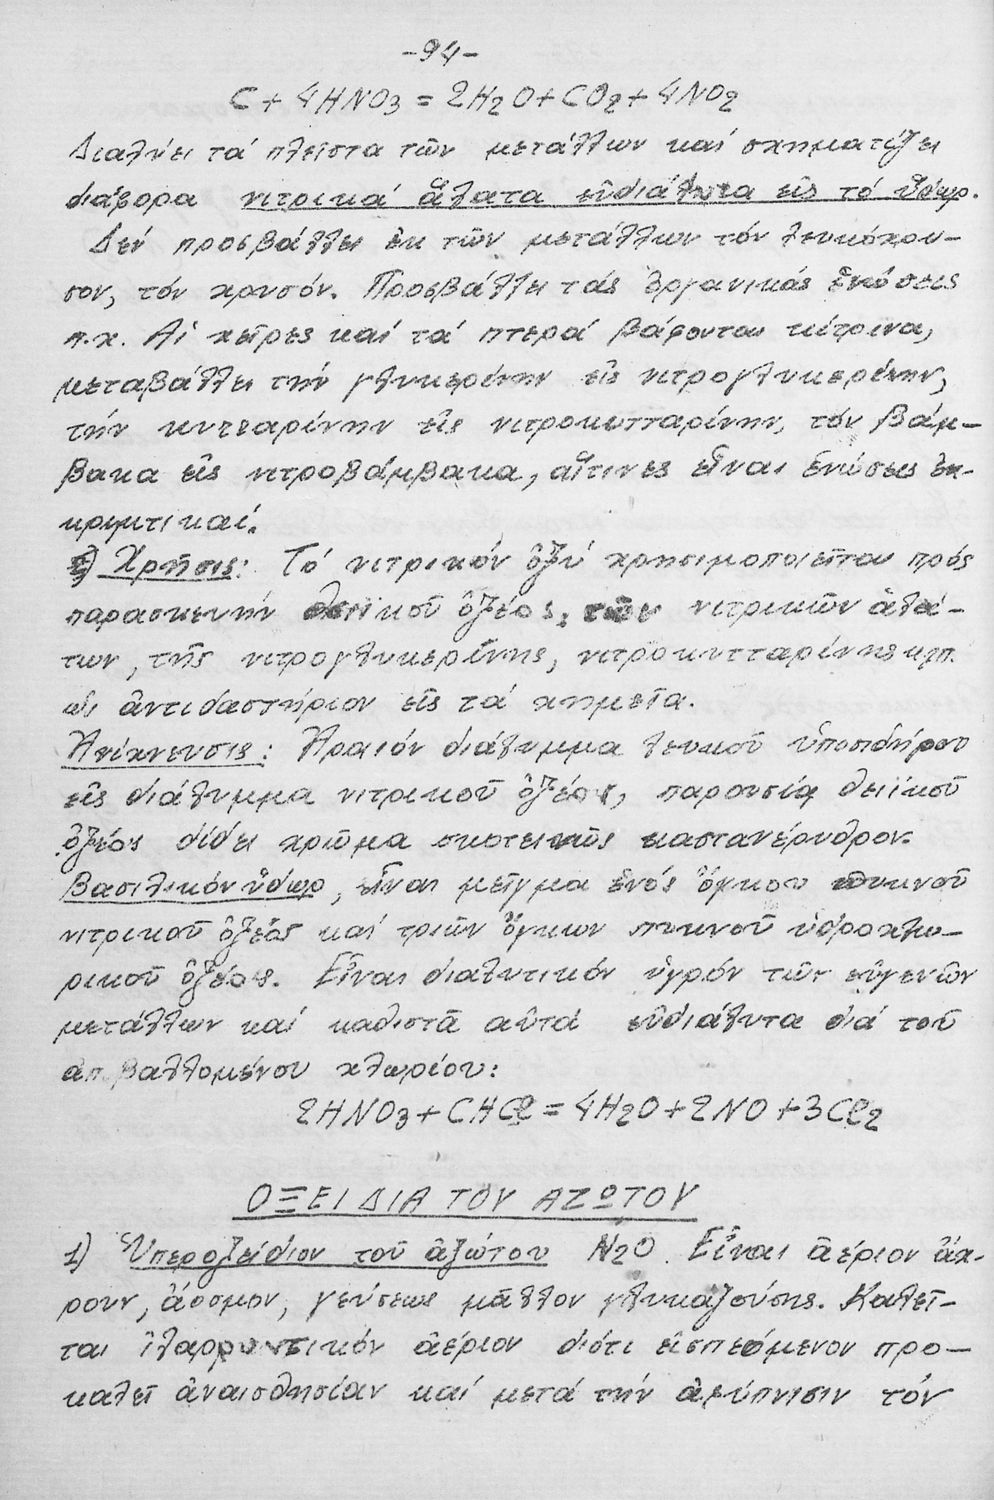 -94-
C + 4HNO3 = 2H2O + CO2 + 4NO2
Διαλύει τά πλεῖστα τῶν μετάλλων καί σχηματίζει
διάφορα νιτρικά ἅλατα εὐδιάλυτα εἰς τό ὕδωρ.
Δέν προσβάλλει ἐκ τῶν μετάλλων τόν λευκόχρυ-
σον, τόν χρυσόν. Προσβάλλει τάς ὀργανικάς ἑνώσεις
π.χ. Αἱ χεῖρες καί τά πτερά βάφονται κίτρινα,
μεταβάλλει τήν γλυκερίνην εἰς νιτρογλυκερίνην,
τήν κυτταρίνην εἰς νιτροκυτταρίνην, τόν βάμ-
βακα εἰς νιτροβάμβακα, αἵτινες εἶναι ἑνώσεις ἐκ-
κρηκτικαί.
Χρῆσις: Τό νιτρικόν ὀξύ χρησιμοποιεῖται πρός
παρασκευήν θειϊκοῦ ὀξέος, τῶν νιτρικῶν ἁλά-
των, τῆς νιτρογλυκερίνης, νιτροκυτταρίνης κλπ.
ὡς ἀντιδραστήριον εἰς τά χημεῖα.
Ἀνίχνευσις: Ἀραιόν διάλυμμα θειικοῦ ὑποσιδήρου
εἰς διάλυμμα νιτρικοῦ ὀξέος, παρουσίᾳ θειϊκοῦ
ὀξέος δίδει χρῶμα σκοτεινῶς καστανέρυθρον.
Βασιλικόν ὕδωρ, εἶναι μεῖγμα ἑνός ὄγκου πυκνοῦ
νιτρικοῦ ὀξέος καί τριῶν ὄγκων πυκνοῦ ὑδροχλω-
ρικοῦ ὀξέος. Εἶναι διαλυτικόν ὑγρόν τῶν εὐγενῶν
μετάλλων καί καθιστᾶ αὐτά εὐδιάλυτα διά τοῦ
ἀποβαλλομένου χλωρίου:
2HNO3 + CHCl = 4H2O + 2NO + 3Cl2
ΟΞΕΙΔΙΑ ΤΟΥ ΑΖΩΤΟΥ
1) Ὑπεροξείδιον τοῦ ἀζώτου N2O. Εἶναι ἀέριον ἄχ-
ρουν, ἄοσμον, γεύσεως μᾶλλον γλυκαζούσης. Καλεῖ-
ται ἱλαρρυντικόν ἀέριον διότι εἰσπεόμενον προ-
καλεῖ ἀναισθησίαν καί μετά τήν ἀφύπνισιν τόν